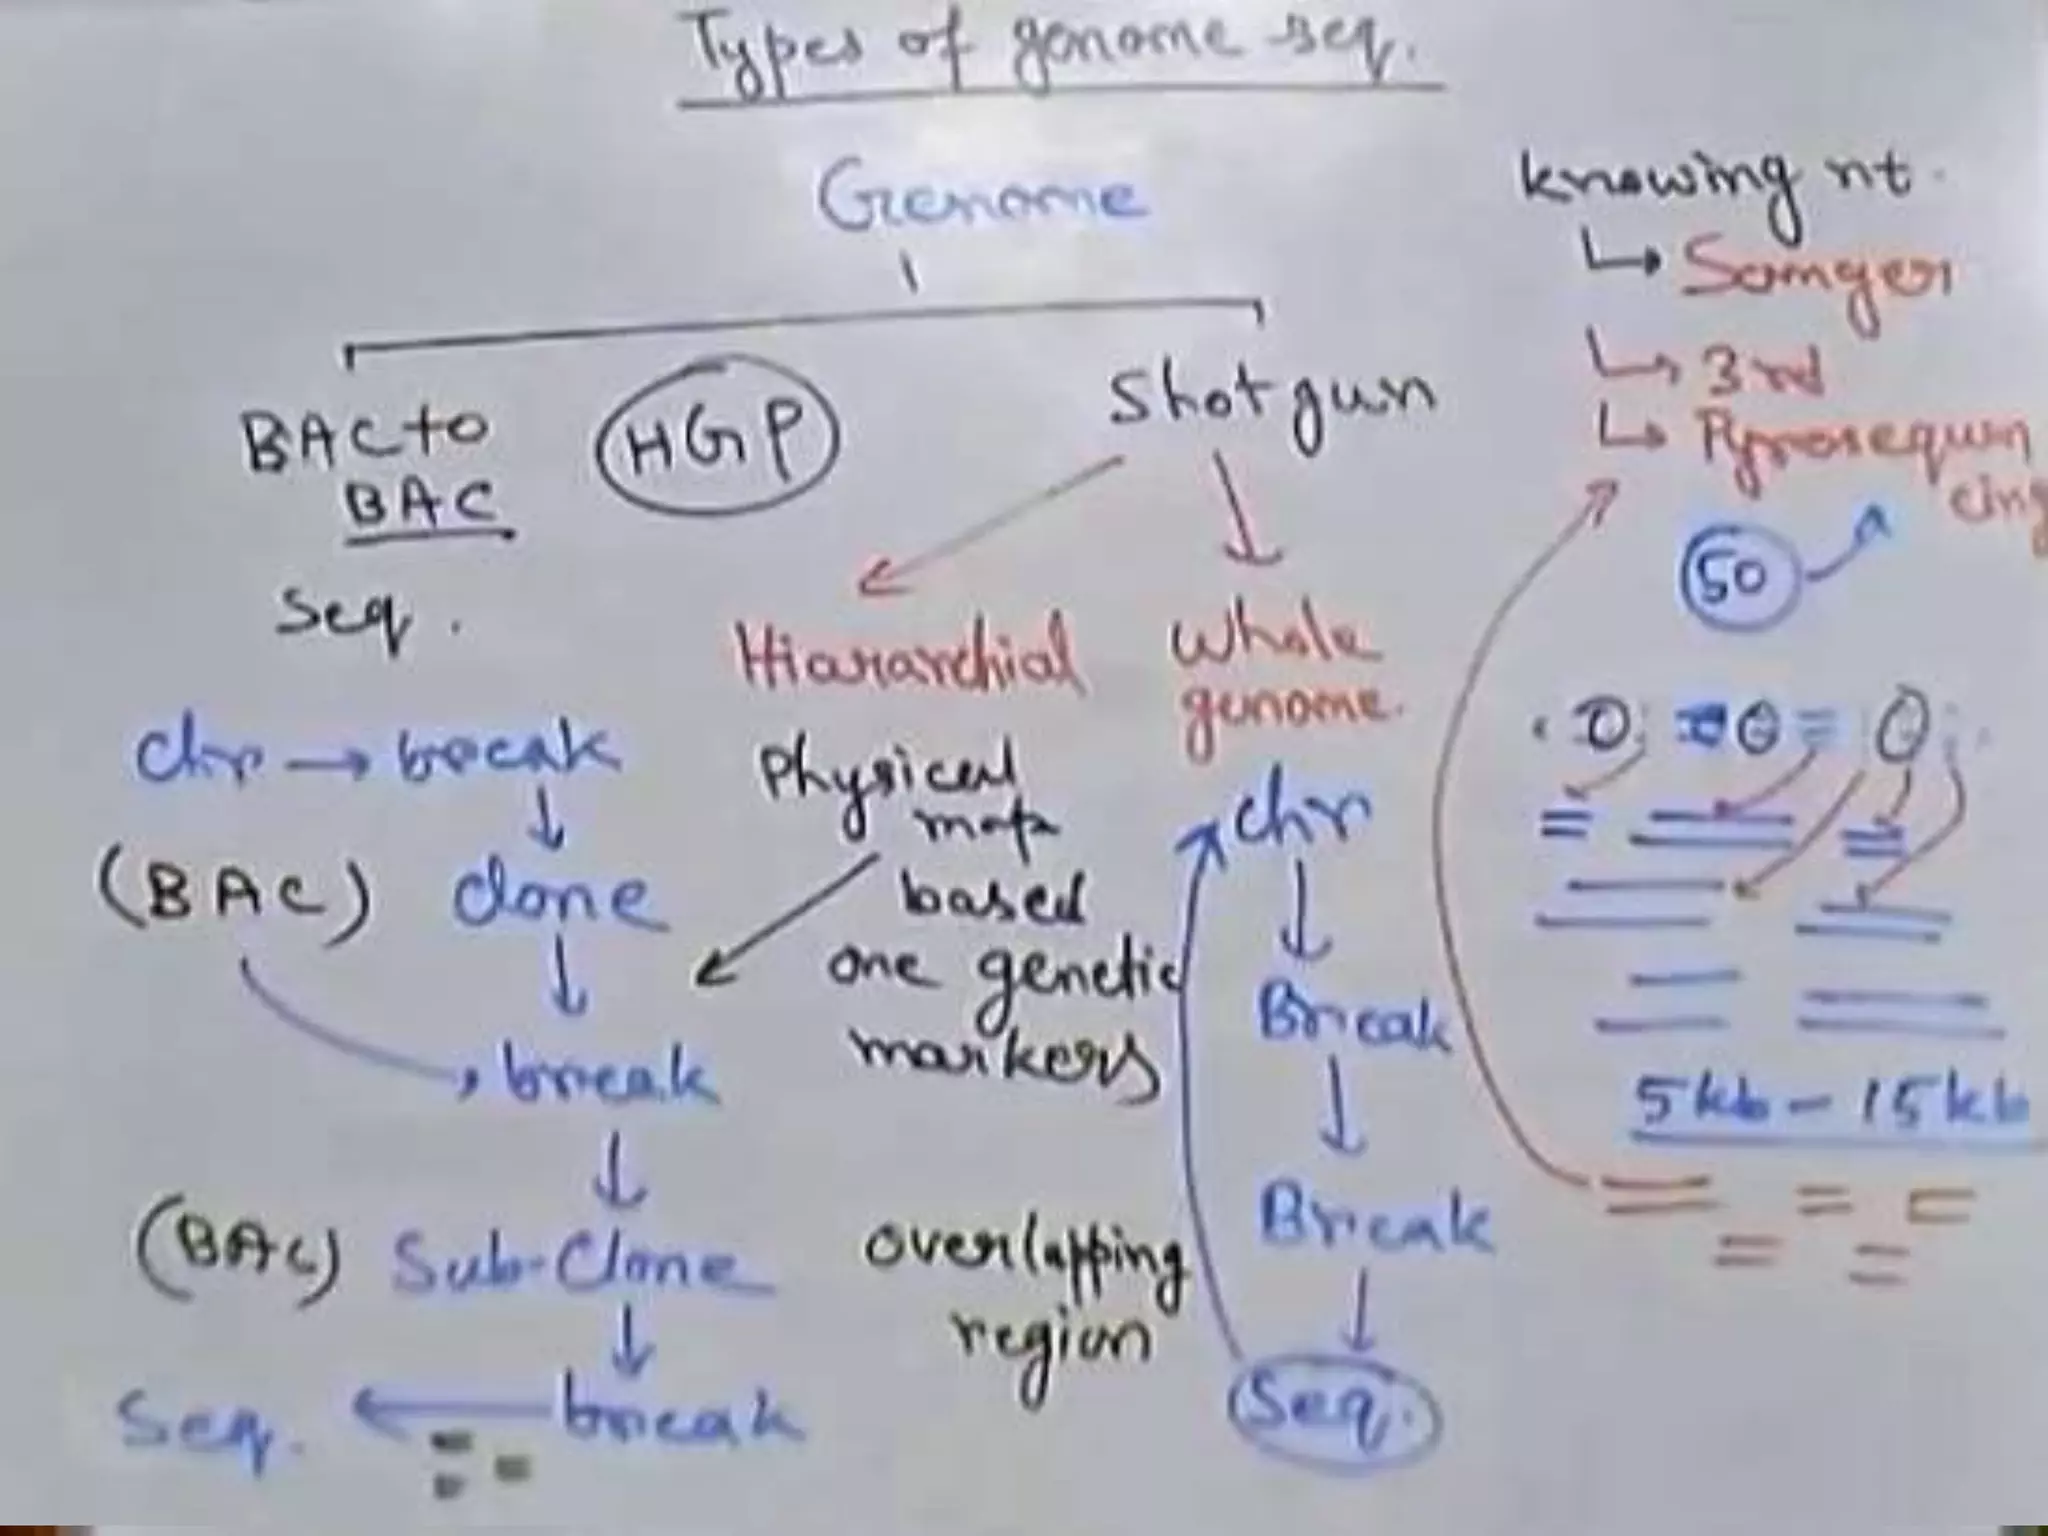 Types of genome seq.
Genome
BAC to
BAC
Seq.
HGP
Shotgun
Hiararchial
Whole
genome.
chr → break
(BAC) clone
break
(BAC) Sub-Clone
break
Seq.
Physical
map
based
one genetic
markers
overlapping
region
chr
Break
Break
Seq.
knowing nt.
Sanger
3rd
Pyrosequen
cing
50
5kb - 15kb